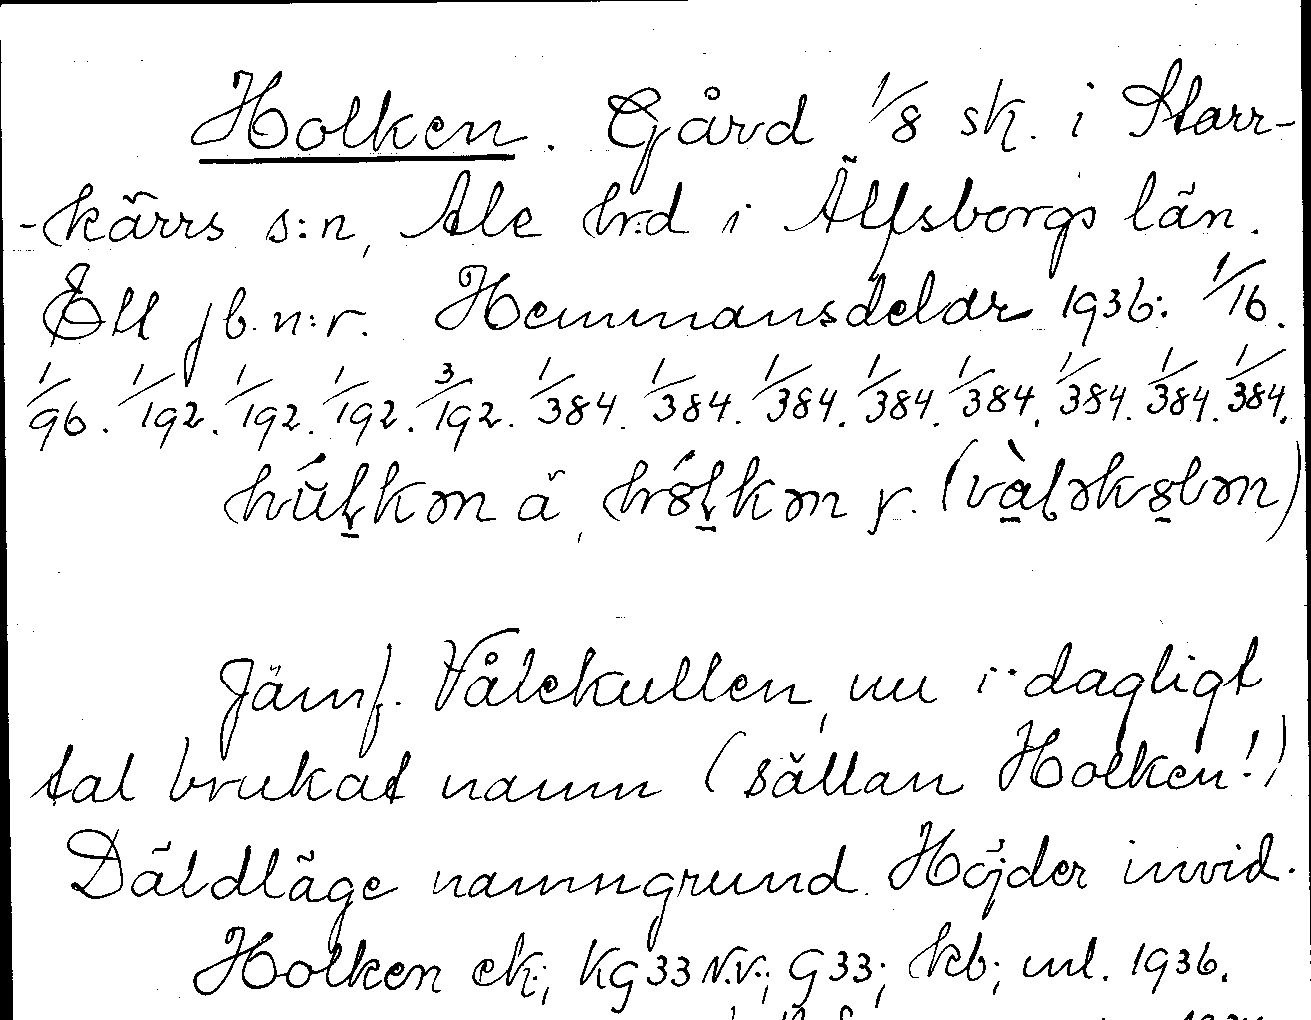 Holken. Gård 1/8 sk. i Starr-
-kärrs s:n, Ale hrd i Älfsborgs län.
Ett jb.n:r. Hemmansdelar 1936: 1/16.
1/96. 1/192. 1/192. 1/192. 3/192. 1/384. 1/384. 1/384. 1/384. 1/384. 1/384. 1/384. 1/384.
ä, y.
Jämf. Vålekullen, nu i dagligt
tal brukat namn (sällan Holken!)
Däldläge namngrund. Höjder invid.
Holken ek; Kg 33 N.V.; G 33; kb; ml. 1936.